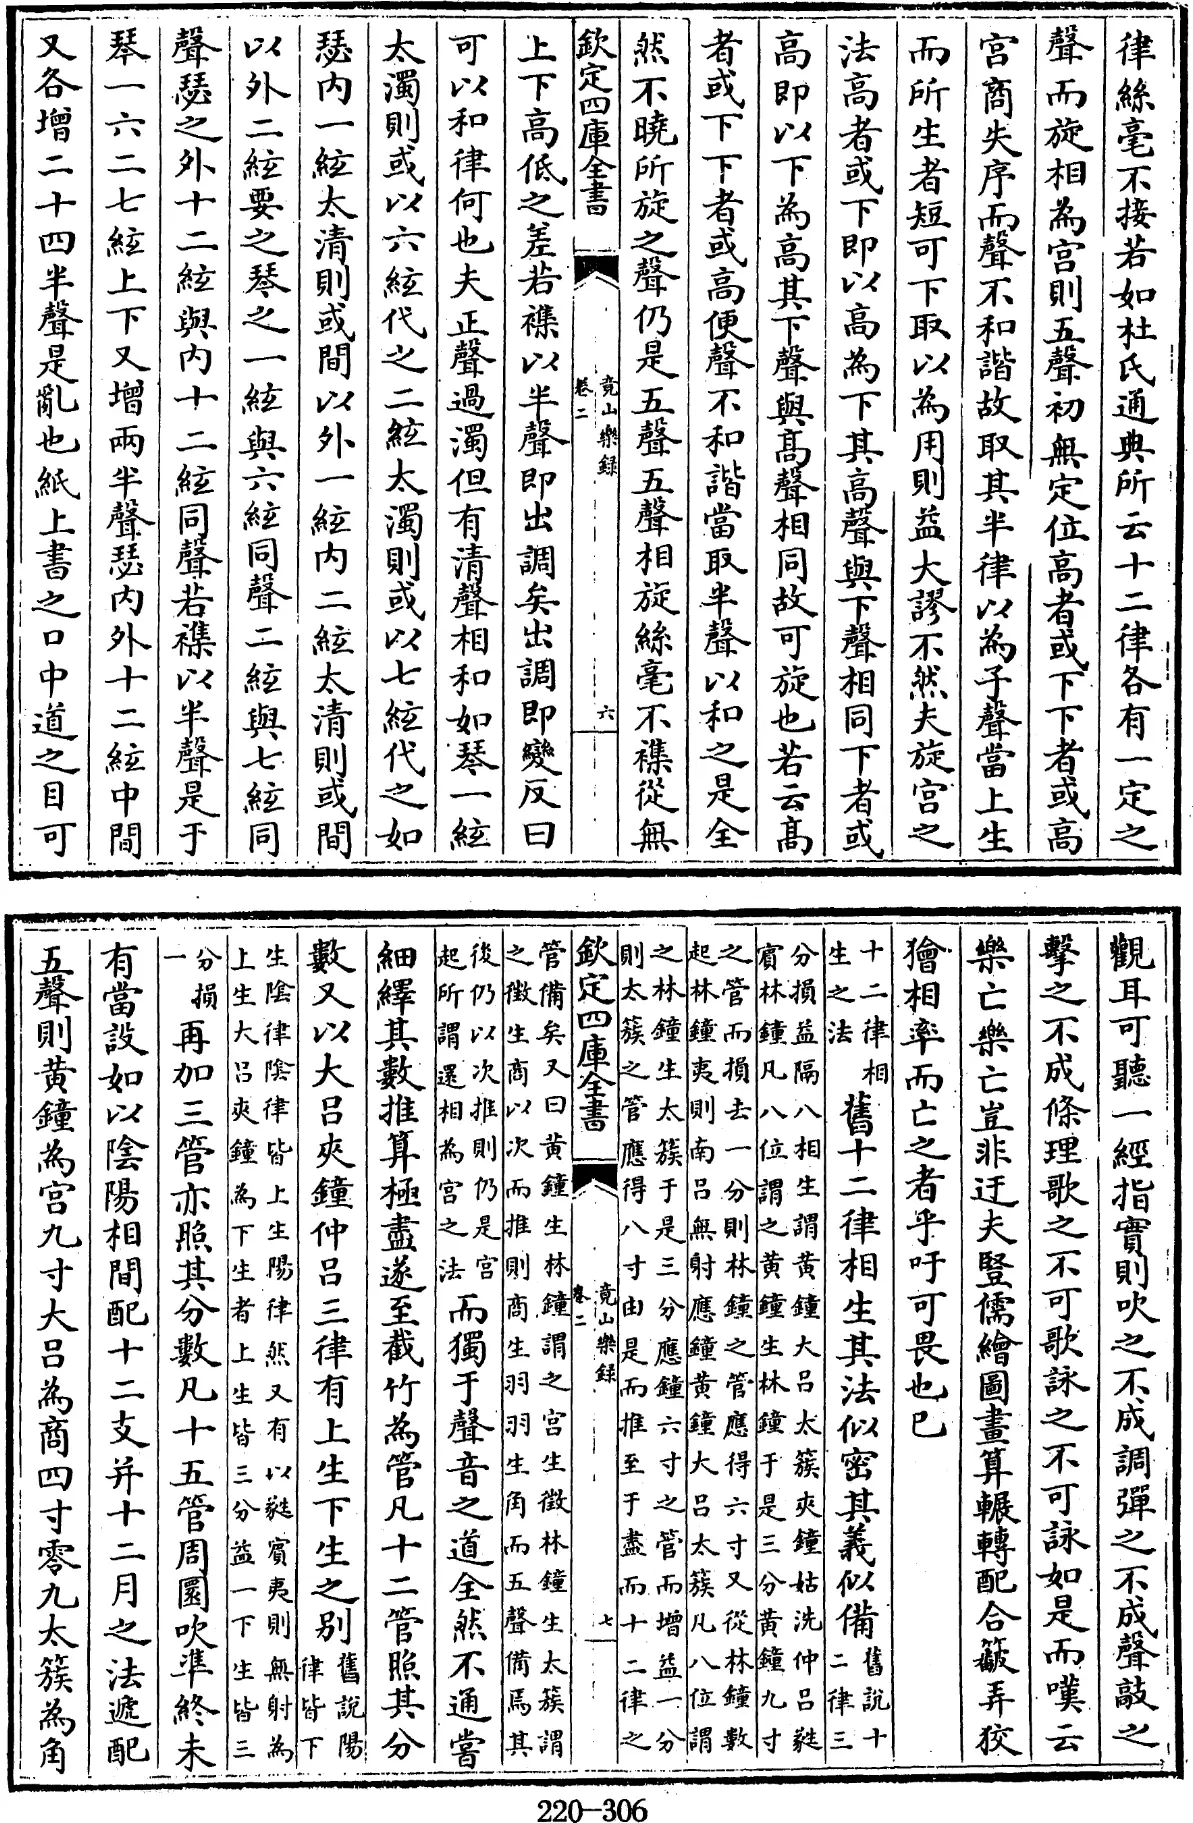 律絲毫不接若如杜氏通典所云十二律各有一定之
聲而旋相為宮則五聲初無定位高者或下下者或高
宮商失序而聲不和諧故取其半律以為子聲當上生
而所生者短可下取以為用則益大謬不然夫旋宮之
法高者或下即以高為下其高聲與下聲相同下者或
高即以下為高其下聲與髙聲相同故可旋也若云髙
者或下下者或高便聲不和諧當取半聲以和之是全
然不曉所旋之聲仍是五聲五聲相旋絲毫不襍從無
欽定四庫全書
竟山樂録
卷二
六
上下高低之差若襍以半聲即出調矣出調即變反曰
可以和律何也夫正聲過濁但有清聲相和如琴一絃
太濁則或以六絃代之二絃太濁則或以七絃代之如
瑟内一絃太清則或間以外一絃内二絃太清則或間
以外二絃要之琴之一絃與六絃同聲二絃與七絃同
聲瑟之外十二絃與内十二絃同聲若襍以半聲是于
琴一六二七絃上下又增兩半聲瑟内外十二絃中間
又各增二十四半聲是亂也紙上書之口中道之目可
觀耳可聽一經指實則吹之不成調彈之不成聲敲之
擊之不成條理歌之不可歌詠之不可詠如是而嘆云
樂亡樂亡豈非迂夫豎儒繪圖畫算輾轉配合簸弄狡
獪相率而亡之者乎吁可畏也已
十二律相
生之法
舊十二律相生其法似密其義似備
舊說十
二律三
分損益隔八相生謂黃鐘大呂太簇夾鐘姑洗仲呂蕤
賓林鐘凡八位謂之黃鐘生林鐘于是三分黃鐘九寸
之管而損去一分則林鐘之管應得六寸又從林鐘數
起林鐘夷則南呂無射應鐘黃鐘大呂太簇凡八位謂
之林鐘生太簇于是三分應鐘六寸之管而增益一分
則太簇之管應得八寸由是而推至于盡而十二律之
欽定四庫全書
竟山樂録
卷二
七
管備矣又曰黃鐘生林鐘謂之宮生徵林鐘生太簇謂
之徵生商以次而推則商生羽羽生角而五聲備焉其
後仍以次推則仍是宮
起所謂還相為宮之法
而獨于聲音之道全然不通嘗
細繹其數推算極盡遂至截竹為管凡十二管照其分
數又以大呂夾鐘仲呂三律有上生下生之別
舊說陽
律皆下
生陰律陰律皆上生陽律然又有以蕤賓夷則無射為
上生大呂夾鐘為下生者上生皆三分益一下生皆三
分損
一
再加三管亦照其分數凡十五管周圜吹準終未
有當設如以陰陽相間配十二支并十二月之法遞配
五聲則黃鐘為宮九寸大呂為商四寸零九太簇為角
220-306